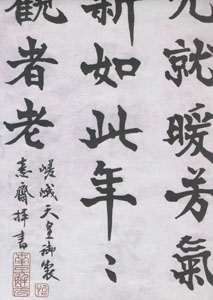 光就暖芳氣
新如此年〻
觀者老
嵯峨天皇御製
恵齋拝書